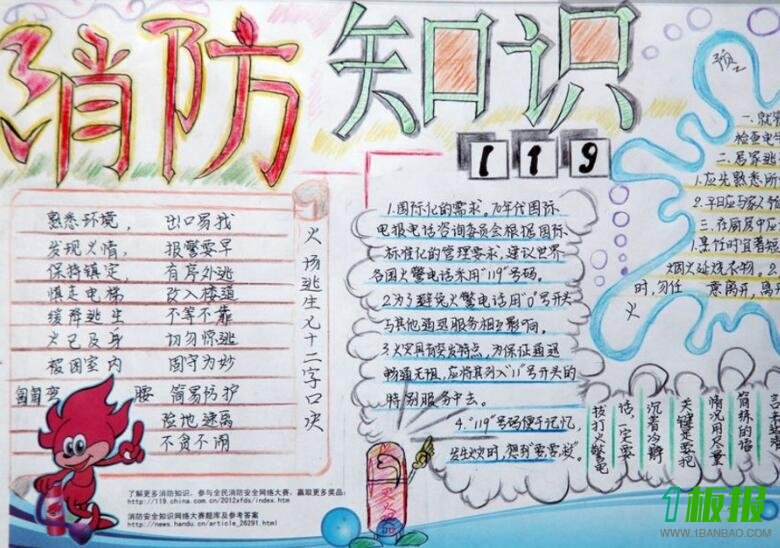 消防知识
119
火场逃生七十二字口决
熟悉环境， 出口易找
发现火情， 报警要早
保持镇定， 有序外逃
慎走电梯 改入楼道
缓降逃生 不等不靠
火已及身 切勿惊逃
被困室内 固守为妙
匍匐弯 腰 简易防护
险地速离
不贪不闹
1.国际化的需求。70年代国际
电报电话咨询委员会根据国际
标准化的管理要求，建议世界
各国火警电话采用"119"号码。
2.为了避免火警电话用"0"号开头
与其他通迅服务相互影响。
3.火灾具有突发特点，为保证通迅
畅通无阻，应将其列入"11"号开头的
特别服务中去。
4."119"号码便于记忆，
发生火灾时，想到"要要救"
预
一.就
检查电
二.居家逃
1.应先熟悉所
2.平日应与家人
三.在厨房中应
1.煮饭时宜着短
烟火延烧衣物。2
时，勿任 意离开，离开
火
拨打火警电
话，一定要
沉着冷静
关键是要把
情况用尽量
简练的语
言
了解更多消防知识，参与全民消防安全网络大赛，赢取更多奖品：
http://119.china.com.cn/2012xfds/index.htm
消防安全知识网络大赛题库及参考答案
http://news.handu.cn/article_26291.html
1板报
WWW.1BANBAO.COM